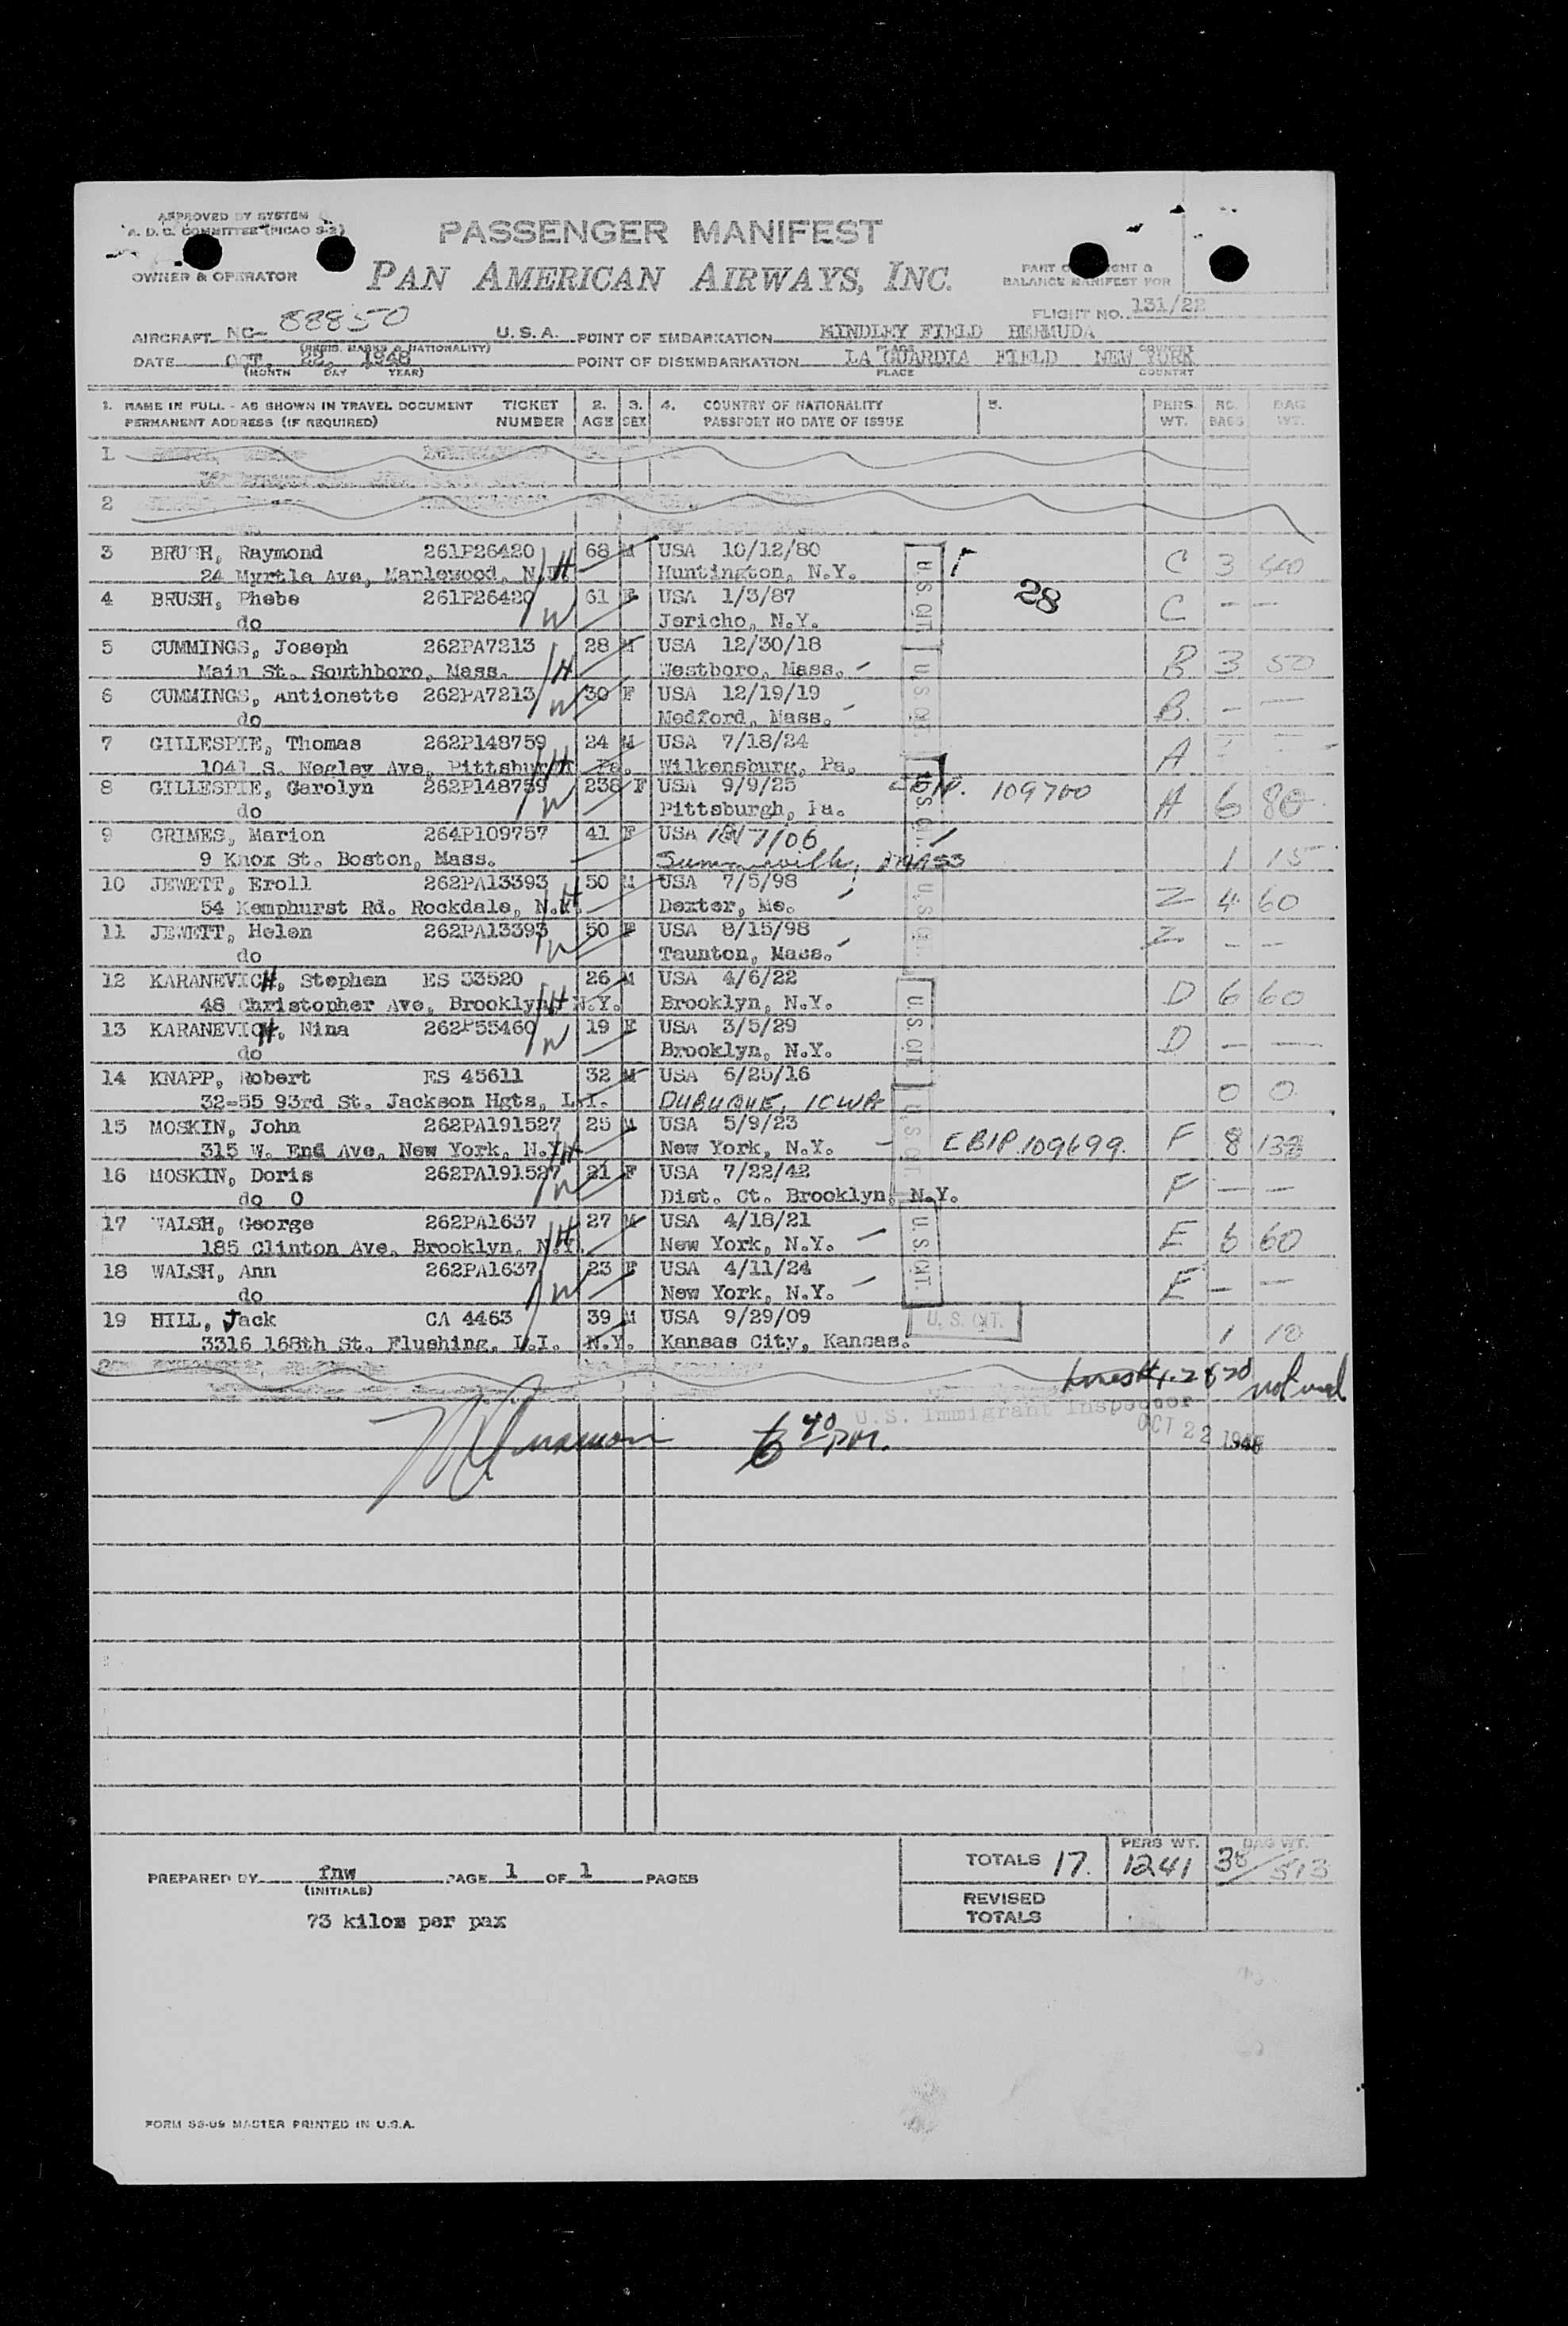 APPROVED BY SYSTEM
A. D. C. COMMITTEE (PICAO S-2)
PASSENGER MANIFEST
OWNER & OPERATOR
PAN AMERICAN AIRWAYS, INC.
BALANCE MANIFEST FOR
FLIGHT NO. 131/22
AIRCRAFT NC- 88850 U.S.A. POINT OF EMBARKATION KINDLEY FIELD BERMUDA
(REGIS. MARKS & NATIONALITY) PLACE COUNTRY
DATE OCT. 22, 1948 POINT OF DISEMBARKATION LA GUARDIA FIELD NEW YORK
(MONTH DAY YEAR) PLACE COUNTRY
1. NAME IN FULL - AS SHOWN IN TRAVEL DOCUMENT TICKET 2. 3. 4. COUNTRY OF NATIONALITY 5. PERS. NO. BAG
PERMANENT ADDRESS (IF REQUIRED) NUMBER AGE SEX PASSPORT NO DATE OF ISSUE WT. BAGS WT.
1
2
3 BRUSH, Raymond 261P26420 68 M USA 10/12/80 C 3 40
24 Myrtle Ave, Maplewood, N.J. H Huntington, N.Y. U.S. CIT.
4 BRUSH, Phebe 261P26420 61 F USA 1/3/87 28 C — —
do W Jericho, N.Y.
5 CUMMINGS, Joseph 262PA7213 28 M USA 12/30/18 B 3 50
Main St. Southboro, Mass. H Westboro, Mass. U.S. CIT.
6 CUMMINGS, Antionette 262PA7213 30 F USA 12/19/19 B. — —
do W Medford, Mass.
7 GILLESPIE, Thomas 262P148759 24 M USA 7/18/24 A
1041 S. Negley Ave, Pittsburgh Pa. H Wilkensburg, Pa.
8 GILLESPIE, Carolyn 262P148759 23 F USA 9/9/25 109700 A 6 80
do W Pittsburgh, Pa. U.S. CIT.
9 GRIMES, Marion 264P109757 41 F USA 7/06
9 Knox St. Boston, Mass. MASS 1 15
10 JEWETT, Eroll 262PA13393 50 M USA 7/5/98 Z 4 60
54 Kemphurst Rd. Rockdale, N.Y. H Dexter, Me. U.S. CIT.
11 JEWETT, Helen 262PA13393 50 F USA 8/15/98 Z — —
do W Taunton, Mass.
12 KARANEVICH, Stephen ES 33520 26 M USA 4/6/22 D 6 60
48 Christopher Ave, Brooklyn, N.Y. H Brooklyn, N.Y. U.S. CIT.
13 KARANEVICH, Nina 262P55460 19 F USA 3/5/29 D — —
do W Brooklyn, N.Y.
14 KNAPP, Robert ES 45611 32 M USA 6/25/16 0 0
32-55 93rd St. Jackson Hgts, L.I. DUBUQUE, IOWA
15 MOSKIN, John 262PA191527 25 M USA 5/9/23 F 8 138
315 W. End Ave, New York, N.Y. H New York, N.Y. U.S. CIT. CBIP.109699.
16 MOSKIN, Doris 262PA191527 21 F USA 7/22/42 F — —
do O W Dist. Ct. Brooklyn, N.Y.
17 WALSH, George 262PA1637 27 M USA 4/18/21 E 6 60
185 Clinton Ave, Brooklyn, N.Y. H New York, N.Y. U.S. CIT.
18 WALSH, Ann 262PA1637 23 F USA 4/11/24 E — —
do W New York, N.Y.
19 HILL, Jack CA 4463 39 M USA 9/29/09 U.S. CIT.
3316 168th St. Flushing, L.I. N.Y. Kansas City, Kansas. 1 10
not used
U.S. Immigrant Inspector
6 40 PM. OCT 22 1948
TOTALS 17. PERS WT. 1241 BAG WT. 38/513
PREPARED BY fnw PAGE 1 OF 1 PAGES
(INITIALS)
REVISED
TOTALS
73 kilos per pax
FORM SS-09 MASTER PRINTED IN U.S.A.